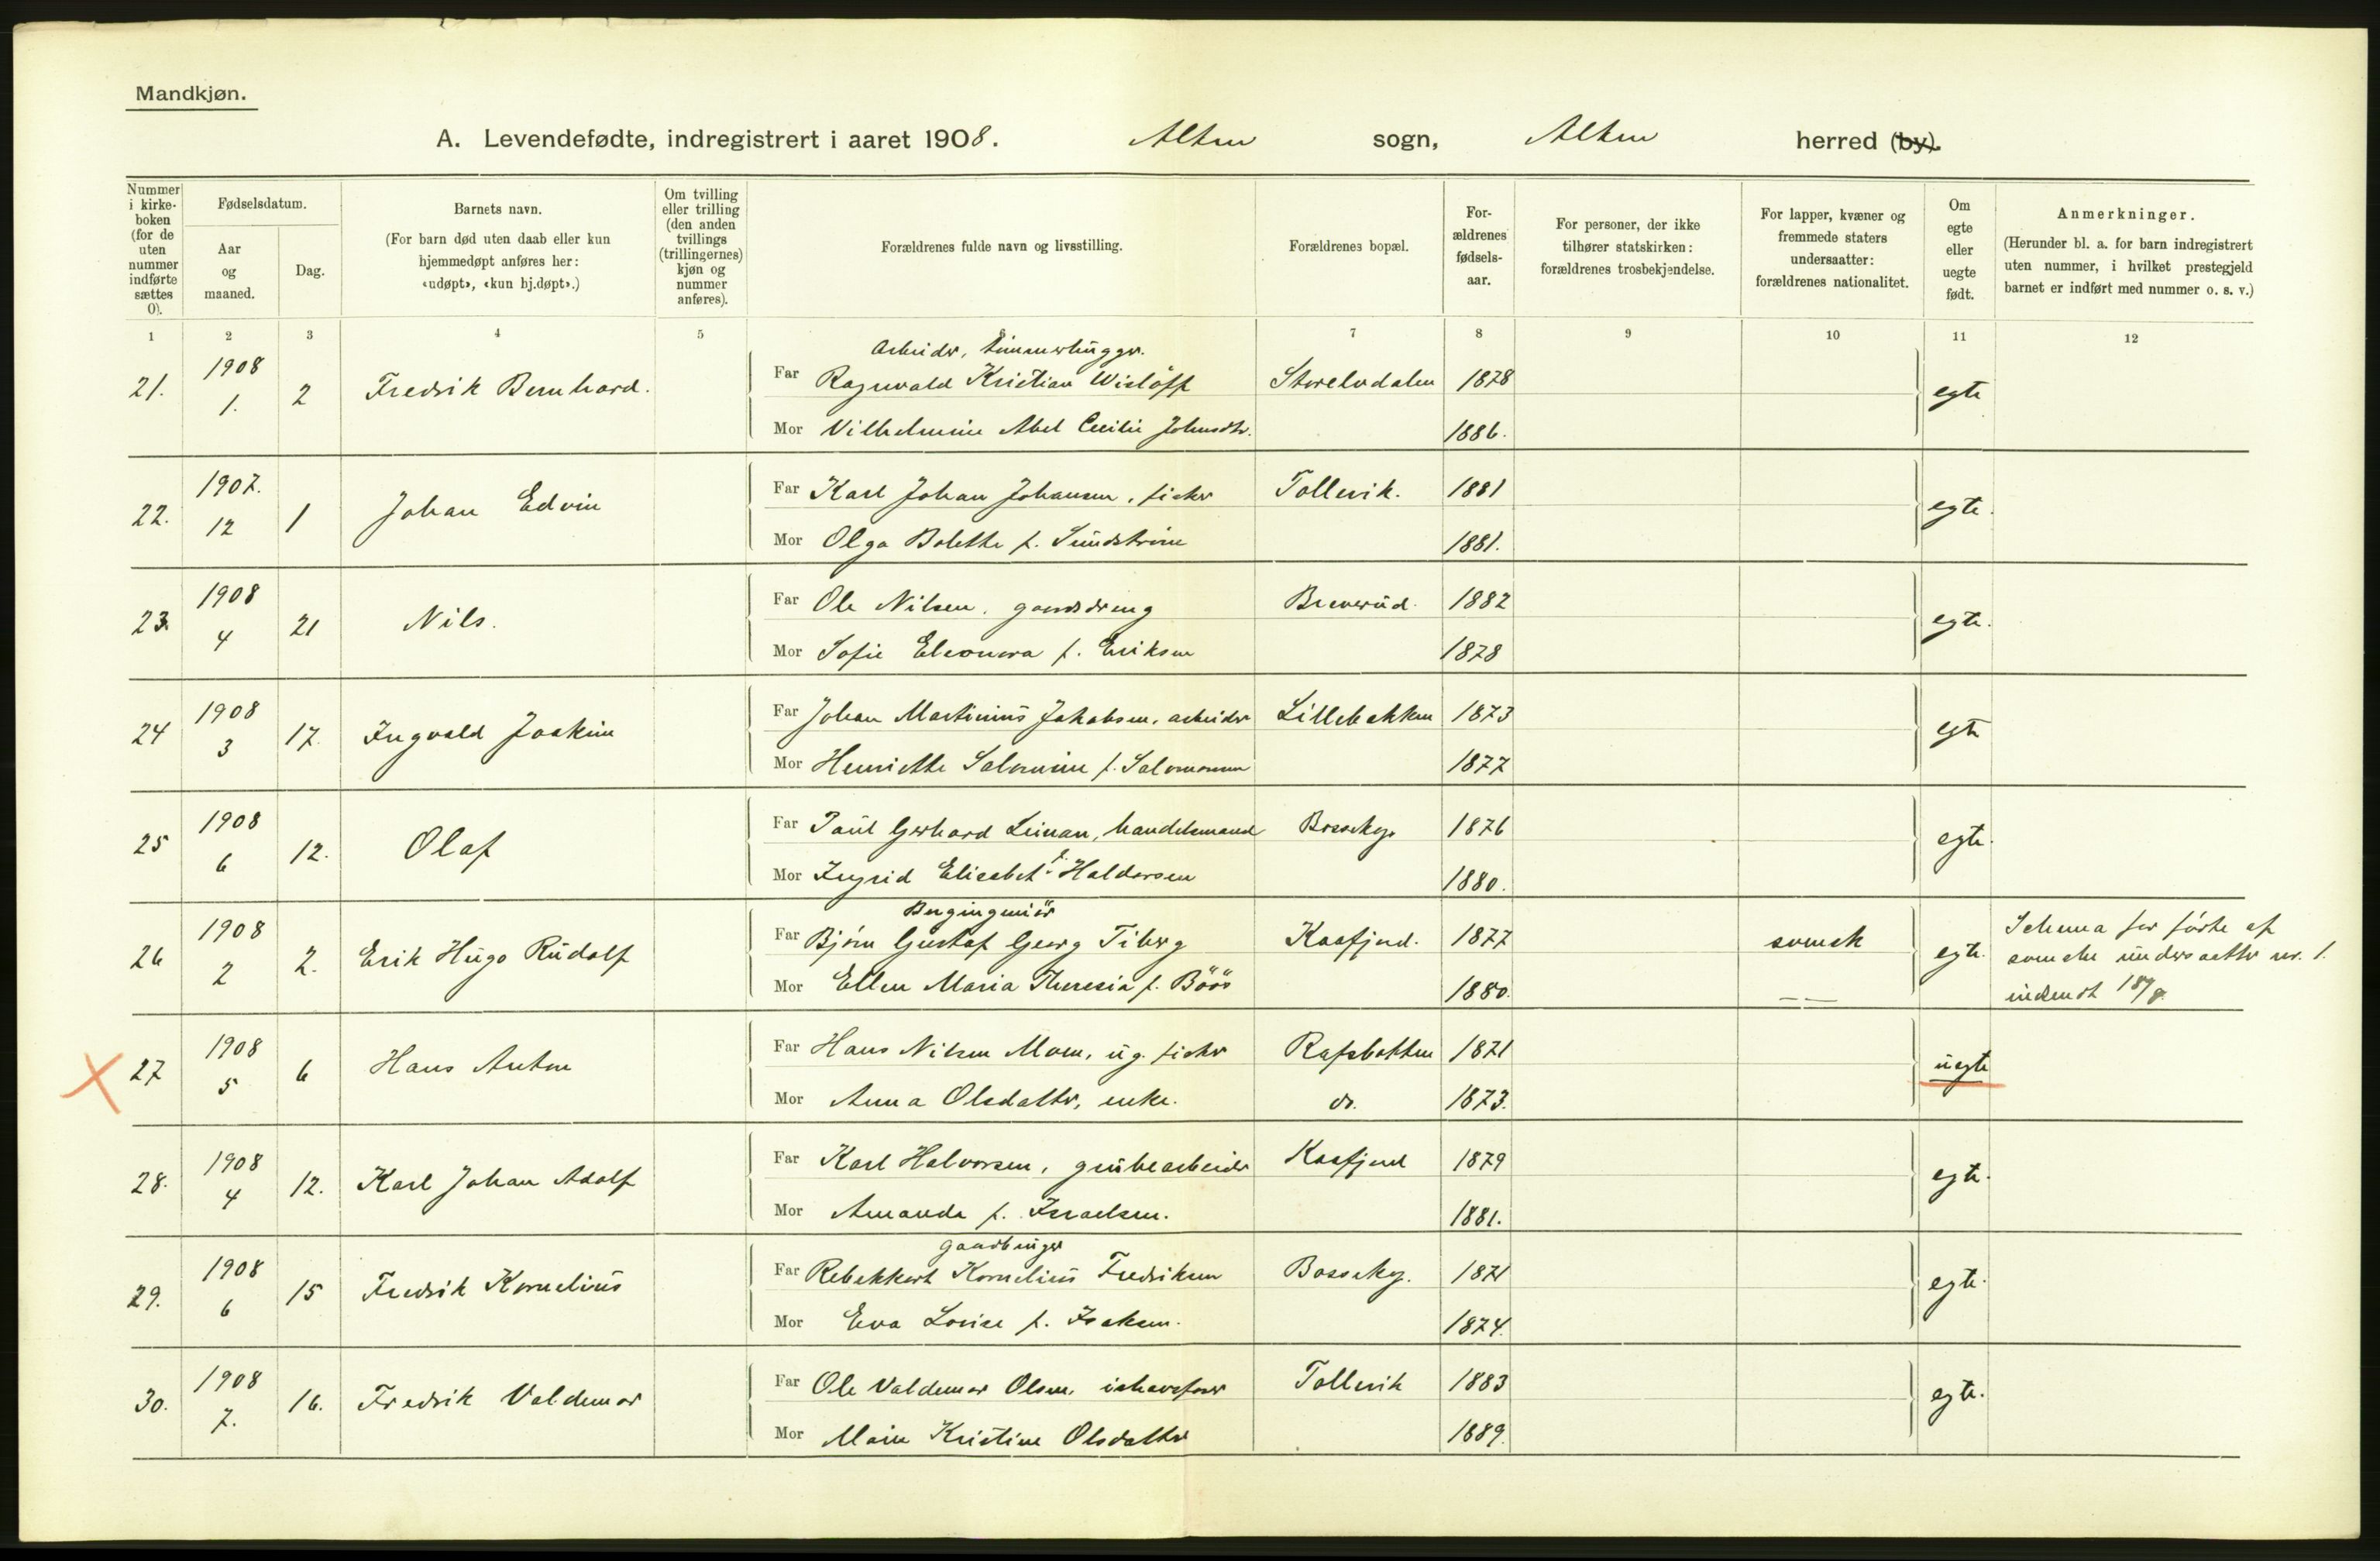 Mandkjøn.
A. Levendefødte, indregistrert i aaret 1908. Alten sogn, Alten herred (by).
Nummer i kirke- boken (for de uten nummer indførte sættes 0).
Fødselsdatum.
Aar og maaned.
Dag.
Barnets navn.
(For barn død uten daab eller kun hjemmedøpt anføres her: «udøpt», «kun hj.døpt».)
Om tvilling eller trilling (den anden tvillings (trillingernes) kjøn og nummer anføres).
Forældrenes fulde navn og livsstilling.
Forældrenes bopæl.
For- ældrenes fødsels- aar.
For personer, der ikke tilhører statskirken: forældrenes trosbekjendelse.
For lapper, kvæner og fremmede staters undersaatter: forældrenes nationalitet.
Om egte eller uegte født.
Anmerkninger.
(Herunder bl. a. for barn indregistrert uten nummer, i hvilket prestegjeld barnet er indført med nummer o. s. v.)
1 2 3 4 5 7 8 9 10 11 12
Arbeider, tømmerhugger.
21. 1908 1. 2 Fredrik Bernhard. Far Ragnvald Kristian Wisløff Storelvdalen 1878 egte
Mor Vilhelmine Abel Cecilie Johnsdtr. 1886.
22. 1907. 12 1 Johan Edvin Far Karl Johan Johansen, fisker Tollevik. 1881 egte.
Mor Olga Bolette f. Sundstrøm 1881.
23. 1908 4 21 Nils. Far Ole Nilsen, gaardsdreng 1882 egte.
Mor Sofie Eleonora f. Eriksen 1878
24 1908 3 17. Ingvald Joakim Far Johan Martinius Jakobsen, arbeider Lillebakken 1873 egte
Mor Henriette Salomine f. Salomonsen 1877
25 1908 6 12. Olaf Far Paul Gerhard Leinan, handelsmand Bossekop 1876 egte.
Mor Ingrid Elisabet f. Haldorsen 1880.
Bergingeniør
26 1908 2 2. Erik Hugo Rudolf Far Bjørn Gustaf Georg Tiberg Kaafjord. 1877 svensk egte. Schema for fødte af
svenske undersaatter nr. 1.
Mor Ellen Maria Theresia f. Böös 1880. — — indsendt 18/8.
27 1908 5 6 Hans Anton Far Hans Nilsen Moen, ug. fisker Rafsbotten 1871 uegte
Mor Anna Olsdatter, enke. do. 1873.
28. 1908 4 12. Karl Johan Adolf Far Karl Halvorsen, grubearbeider Kaafjord 1879 egte.
Mor Amanda f. Israelsen. 1881.
gaardbruger
29. 1908 6 15 Fredrik Kornelius Far Rebekkert Kornelius Fredriksen Bossekop. 1871 egte.
Mor Eva Lovise f. Isaksen. 1874.
30. 1908 7. 16. Fredrik Valdemar Far Ole Valdemar Olsen, ishavsfarer Tollevik 1883 egte.
Mor Marie Kristine Olsdatter 1889.